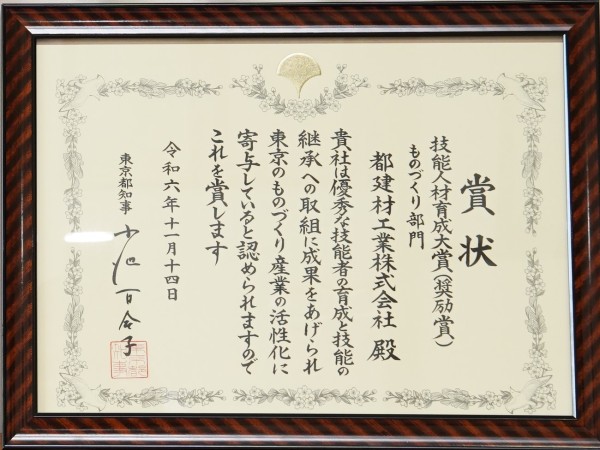 賞状
技能人材育成大賞(奨励賞)
ものづくり部門
都建材工業株式会社 殿
貴社は優秀な技能者の育成と技能の
継承への取組に成果をあげられ
東京のものづくり産業の活性化に
寄与していると認められますので
これを賞します
令和六年十一月十四日
東京都知事 小池百合子